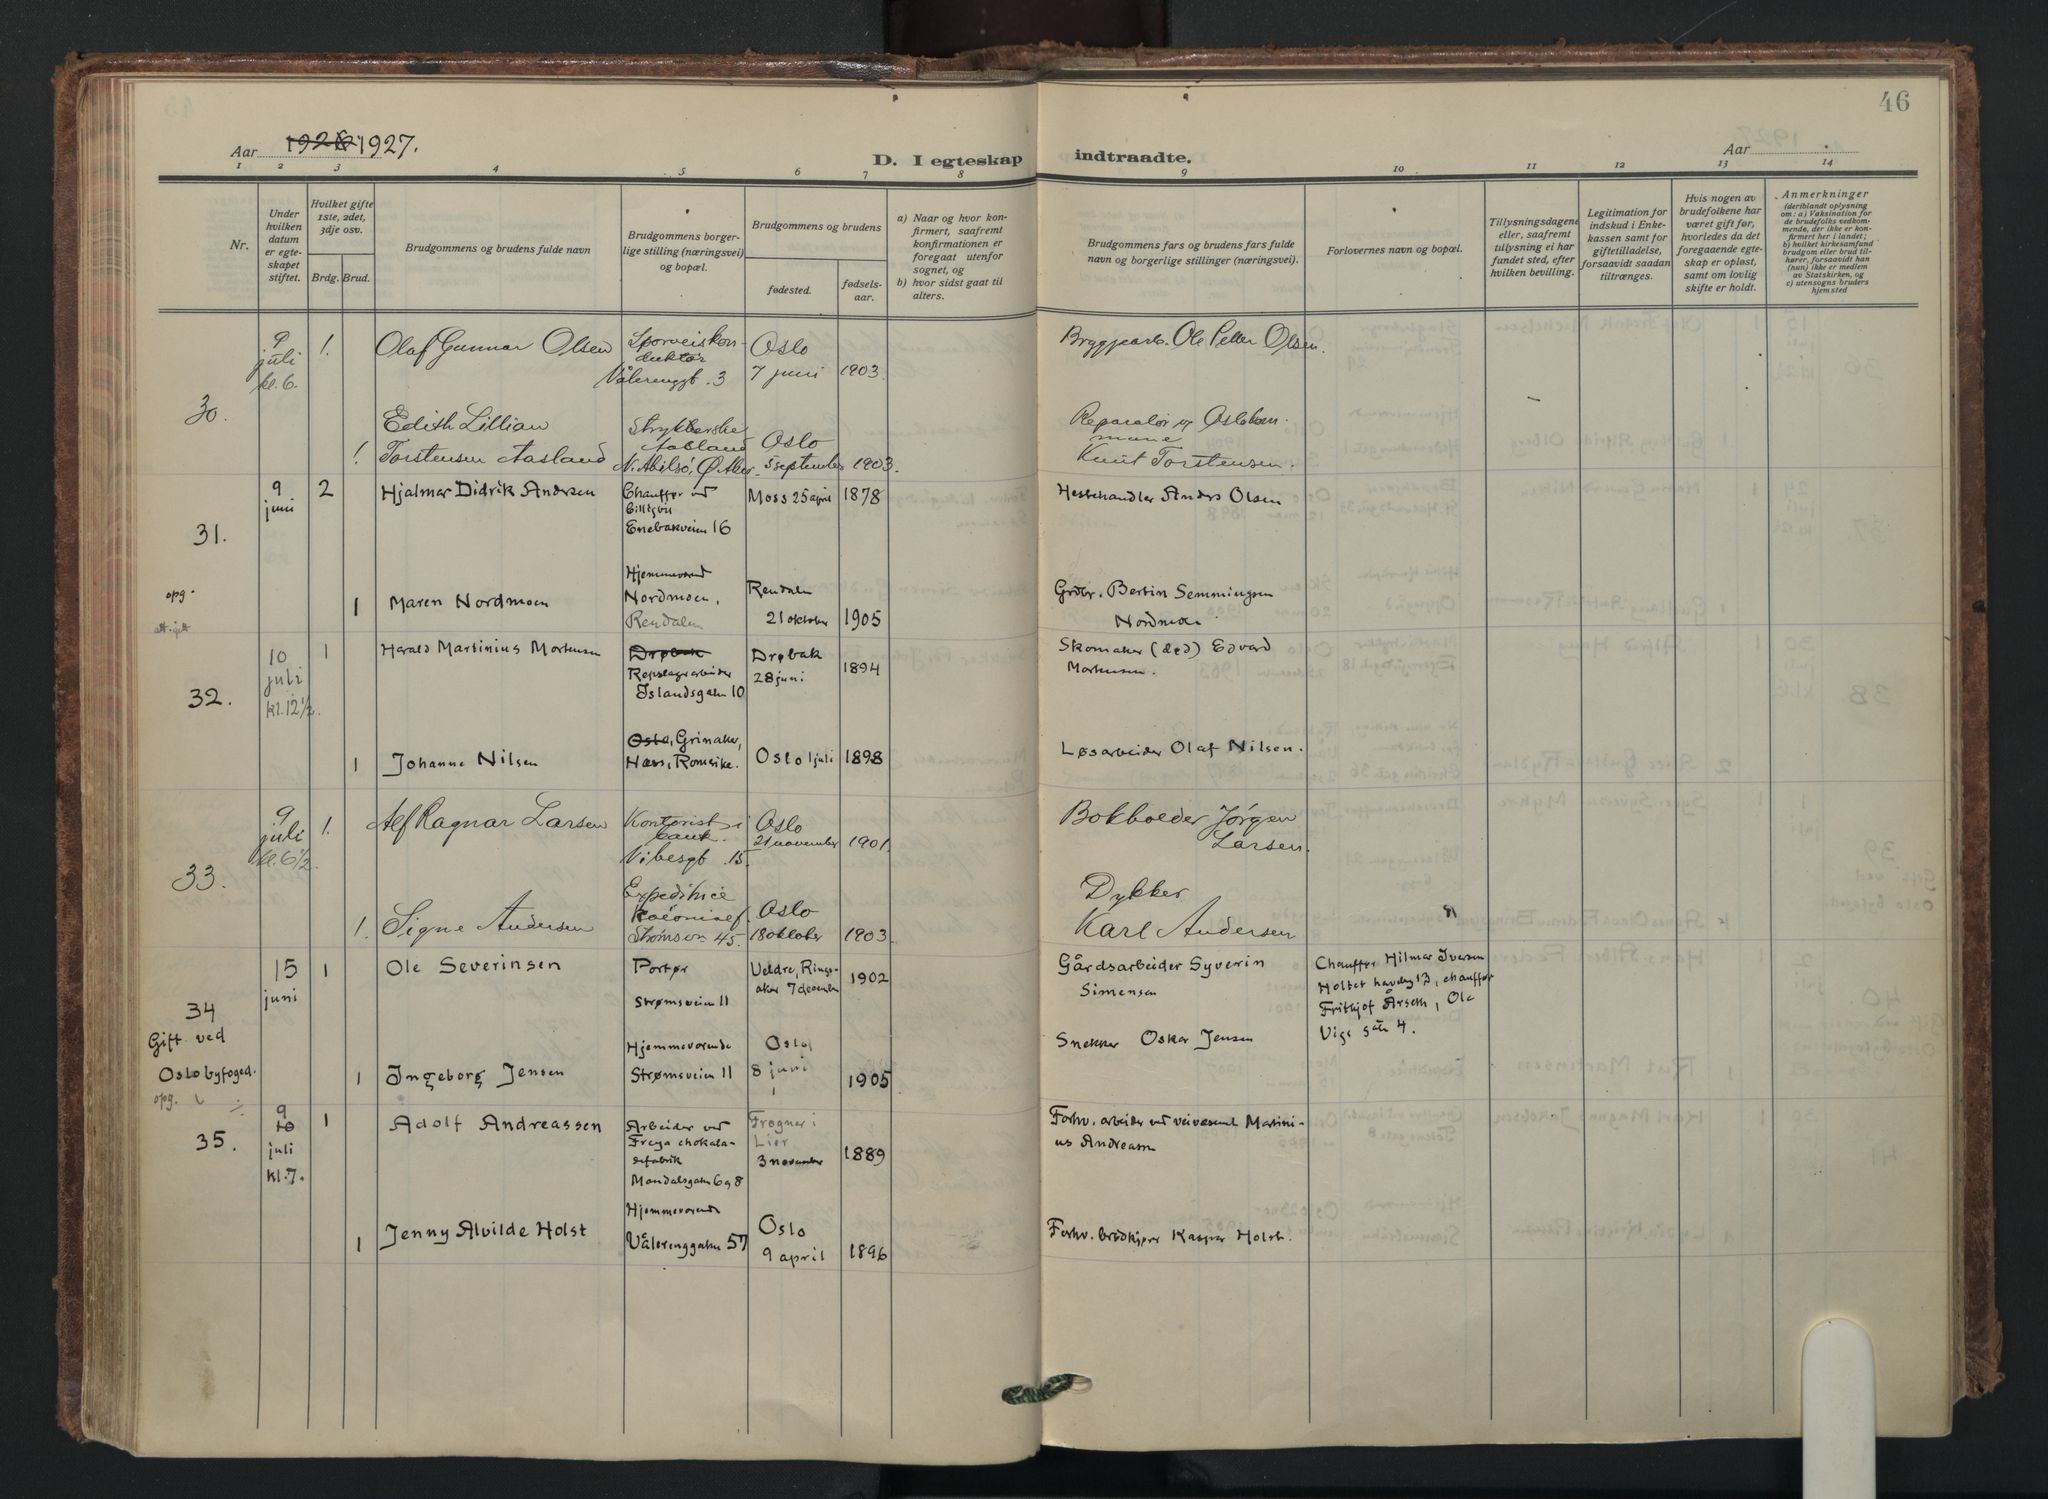 46
Aar 1926 1927.
D. I egteskap indtraadte.
Aar
1 2 3 4 5 6 7 8 9 10 11 12 13 14
Nr.
Under hvilken datum er egteskapet stiftet.
Hvilket gifte 1ste, 2det, 3dje osv.
Brdg. Brud.
Brudgommens og brudens fulde navn
Brudgommens borgerlige stilling (næringsvei) og bopæl.
Brudgommens og brudens
fødested.
fødselsaar.
a) Naar og hvor konfirmert, saafremt konfirmationen er foregaat utenfor sognet, og
b) hvor sidst gaat til alters.
Brudgommens fars og brudens fars fulde navn og borgerlige stillinger (næringsvei).
Forlovernes navn og bopæl.
Tillysningsdagene eller, saafremt tillysning ei har fundet sted, efter hvilken bevilling.
Legitimation for indskud i Enkekassen samt for giftetilladelse, forsaavidt saadan tiltrænges.
Hvis nogen av brudefolkene har været gift før, hvorledes da det foregaaende egteskap er opløst, samt om lovlig skifte er holdt.
Anmerkninger
(deriblandt oplysning om: a) Vaksination for de brudefolks vedkommende, der ikke er konfirmert her i landet;
b) hvilket kirkesamfund brudgom eller brud tilhører, forsaavidt han (hun) ikke er medlem av Statskirken, og
c) utensogns bruders hjemsted
30.
9 juli kl. 6.
1. Olaf Gunnar Olsen
Sporveiskonduktør
Vålerenggt. 3
Oslo
7 juni 1903.
Bryggearb. Ole Petter Olsen.
1. Edith Lillian
Torstensen Aasland
Strykerske
Aasland
N. Abilsø, Ø. Aker
Oslo
5 september 1903.
Reparatør
Knut Torstensen.
31.
9 juni
2 Hjalmar Didrik Andersen
Chauffør ved
Enebakveien 16
Moss 25 april 1878
Hestehandler Anders Olsen
opg.
1 Maren Nordmoen
Hjemmeværend
Nordmoen,
Rendalen
Rendalen
21 oktober 1905
Grdbr. Bertin Semmingsen
Nordmoen
32.
10 juli kl. 12 1/2.
1 Harald Martinius Mortensen
Drøbak
Repslagerarbeider
Islandsgaten 10
Drøbak
28 juni 1894
Skomaker (død) Edvard
Mortensen.
1 Johanne Nilsen
Oslo, Grinaker,
Næss, Romerike.
Oslo 1 juli 1898
Løsarbeider Olaf Nilsen.
33.
9 juli kl. 6 1/2
1. Alf Ragnar Larsen
Kontorist i
bank.
Vibesgt. 15.
Oslo
21 november 1901.
Bokholder Jørgen
Larsen.
1. Signe Andersen
Expeditrice
Strømsvn 45.
Oslo
18 oktober 1903.
Dykker
Karl Andersen
34
Gift ved
Oslo byfoged.
opg.
15 juni
1 Ole Severinsen
Portør
Strømsveien 11
Veldre, Ringsaker 7 december 1902
Gårdsarbeider Syverin
Simensen
Chauffør Hilmar Iversen
Holtet haveby 13, chauffør
Frithjof Årseth, Ole
Vigs gate 4.
1 Ingeborg Jensen
Hjemmeværende
Strømsveien 11
Oslo
8 juni 1905
Snekker Oskar Jensen
35.
9 10 juli kl. 7.
1 Adolf Andreassen
Arbeider ved
Freya chokoladefabrik
Mandalsgaten 6 og 8
Frogner i
Lier
3 november 1889
Forhv. arbeider ved veivæsenet Martinius Andreassen
1 Jenny Alvilde Holst
Hjemmeværende
Vålerenggaten 57
Oslo
9 april 1896
Forhv. brødkjører Kasper Holst.